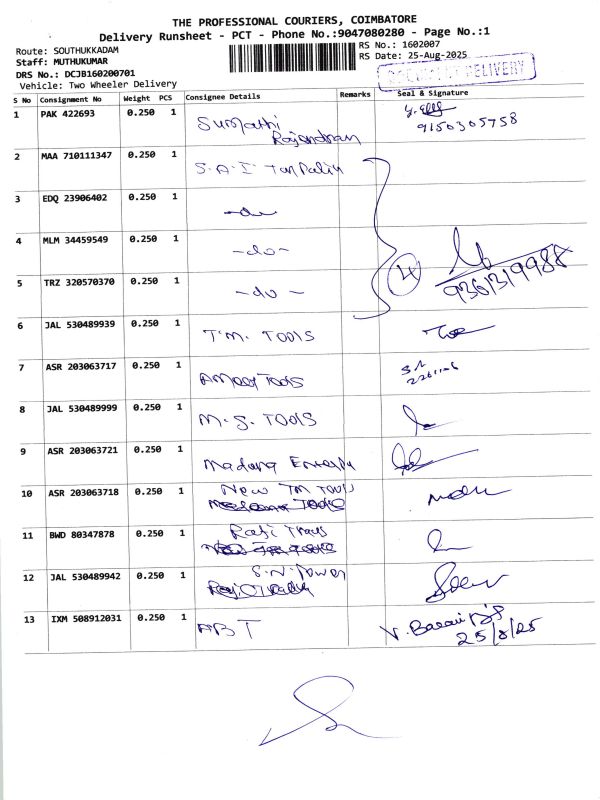 THE PROFESSIONAL COURIERS, COIMBATORE
Delivery Runsheet - PCT - Phone No.:9047080280 - Page No.:1
Route: SOUTHUKKADAM
RS No.: 1602007
Staff: MUTHUKUMAR
RS Date: 25-Aug-2025
DRS No.: DCJB160200701
DELIVERY
Vehicle: Two Wheeler Delivery
S No Consignment No Weight PCS Consignee Details Remarks Seal & Signature
1 PAK 422693 0.250 1 Sumathi Rajendran 9150305758
2 MAA 710111347 0.250 1 S.A.I
3 EDQ 23906402 0.250 1 -do-
4 MLM 34459549 0.250 1 -do- 4
5 TRZ 320570370 0.250 1 -do- 9361319988
6 JAL 530489939 0.250 1 T.M. TOOLS
7 ASR 203063717 0.250 1 TOOLS
8 JAL 530489999 0.250 1 M.S. TOOLS
9 ASR 203063721 0.250 1
10 ASR 203063718 0.250 1 New TM TOOLS
11 BWD 80347878 0.250 1
12 JAL 530489942 0.250 1 S.N. Power
13 IXM 508912031 0.250 1 ABT 25/8/25